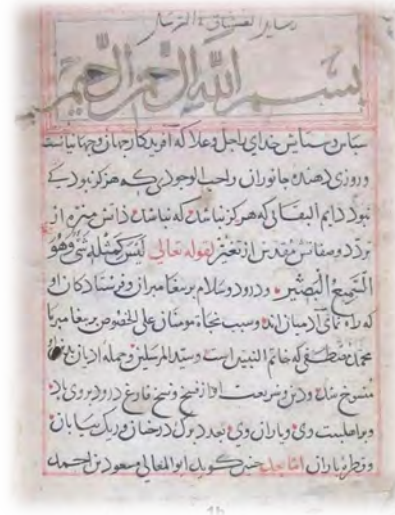 بسم الله الرحمن الرحيم
سپاس و ستایش خدای اجل و علا که آفریدکار جهان و جهانیانست
و روزی دهنده جانوران واجب الوجودی که هرکز نبود کی
نبود دایم البقائی که هرکز نباشد که نباشد ذاتش منزه از
تردد و صفاتش مقدس از تغیر لقوله تعالی لیس کمثله شئ وهو
السمیع البصیر و درود و سلام بر پیغامبران و فرستادکان او
که راه نمای آدمیان اند و سبب نجاة مومنان علی الخصوص بر پیغامبر ما
محمد مصطفی که خاتم النبیین است و سید المرسلین و جمله ادیان
منسخ شد و دین و شریعت او از نسخ و فسخ فارغ درود بر وی باد
و بر اهل بیت وی و یاران وی بعدد برک درختان و ریک بیابان
و قطره باران اما بعد چنین کوید ابو المعالی مسعود بن احمد